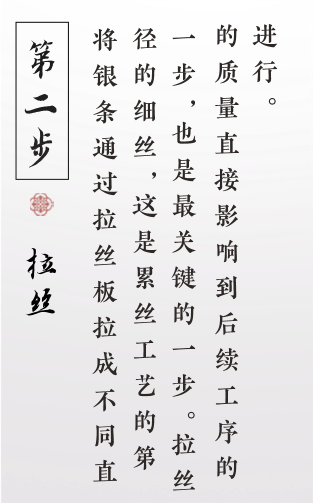 第二步
拉丝
将银条通过拉丝板拉成不同直
径的细丝，这是累丝工艺的第
一步，也是最关键的一步。拉丝
的质量直接影响到后续工序的
进行。